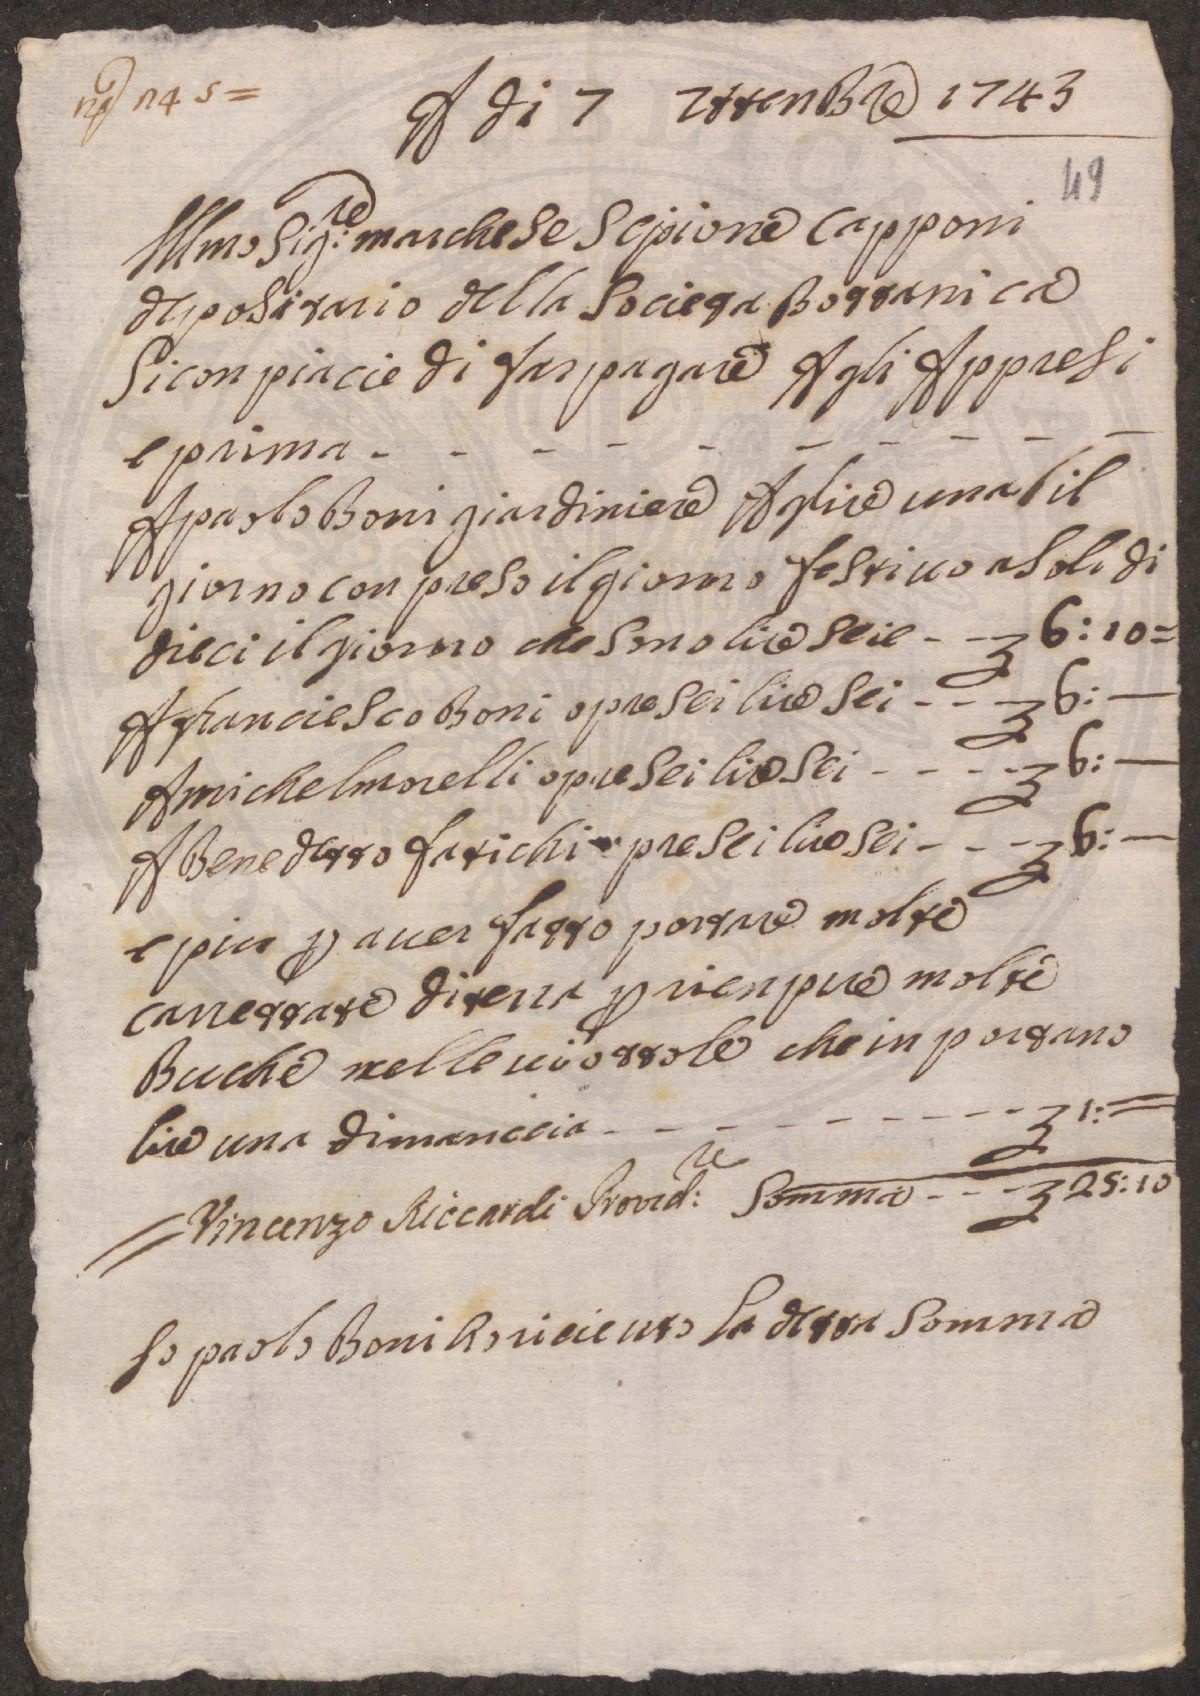 A di 7 7ttenbre 1743
49
Illmo Sig:re marchese Scipione Capponi
depositario della Societa Bottanica
Si con piacie di far pagare Agli Appresi
e prima - - - - - - - - - -
A paolo Boni giardiniere A lire una il
giorno con preso il giorno festivo a soldi
dieci il giorno che sono lire seie - - 6: 10 =
A franciesco Boni opre sei lire sei - - - 6: —
A michel morelli opre sei lire sei - - - - 6: —
A Benedetto farichi opre sei lire sei - - - 6: —
e piu p aver fatto portare molte
carrettate di terra p rienpire molte
Buche nelle viottole che in portano
lire una di mancia - - - - - - - - 1: =
Vincenzo Riccardi Provid:re Somma - - - 25: 10
Io paolo Boni ho riceuto la detta Somma